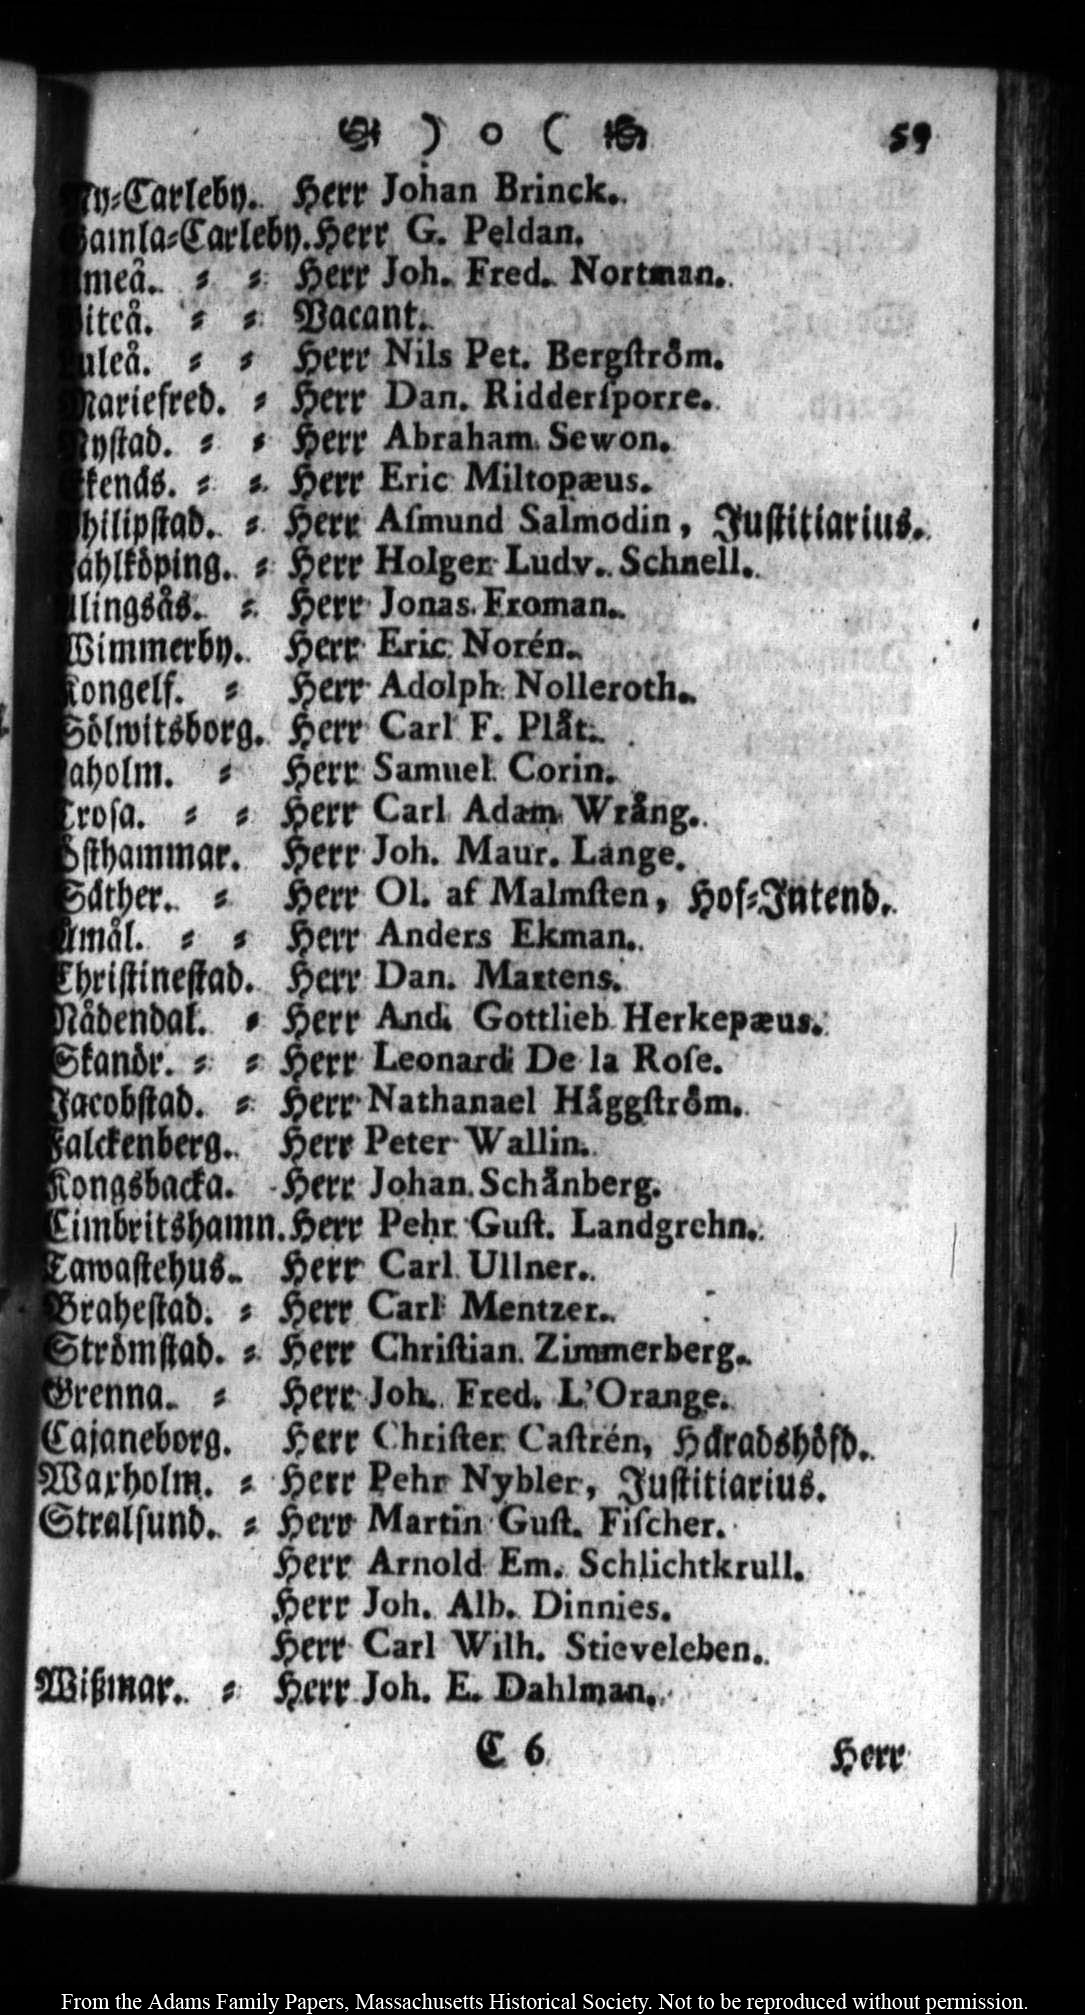 ) o ( 59
Ny-Carleby. Herr Johan Brinck.
Gamla-Carleby. Herr G. Peldan.
Umeå. - - Herr Joh. Fred. Nortman.
Piteå. - - Vacant.
Luleå. - - Herr Nils Pet. Bergström.
Mariefred. - Herr Dan. Ridderſporre.
Nyſtad. - - Herr Abraham Sewon.
Ekenäs. - - Herr Eric Miltopæus.
Philipſtad. - Herr Aſmund Salmodin, Juſtitiarius.
Fahlköping. - Herr Holger Ludv. Schnell.
Alingsås. - Herr Jonas Froman.
Wimmerby. Herr Eric Norén.
Kongelf. - Herr Adolph Nolleroth.
Sölwitsborg. Herr Carl F. Plåt.
Laholm. - Herr Samuel Corin.
Troſa. - - Herr Carl Adam Wrång.
Öſthammar. Herr Joh. Maur. Lange.
Säther. - Herr Ol. af Malmſten, Hof-Intend.
Åmål. - - Herr Anders Ekman.
Chriſtineſtad. Herr Dan. Martens.
Nådendal. - Herr And. Gottlieb Herkepæus.
Skanör. - - Herr Leonard De la Roſe.
Jacobſtad. - Herr Nathanael Häggſtröm.
Falckenberg. Herr Peter Wallin.
Kongsbacka. Herr Johan Schånberg.
Cimbritshamn. Herr Pehr Guſt. Landgrehn.
Tawaſtehus. Herr Carl Ullner.
Braheſtad. - Herr Carl Mentzer.
Strömſtad. - Herr Chriſtian Zimmerberg.
Grenna. - Herr Joh. Fred. L'Orange.
Cajaneborg. Herr Chriſter Caſtrén, Häradshöfd.
Waxholm. - Herr Pehr Nybler, Juſtitiarius.
Stralſund. - Herr Martin Guſt. Fiſcher.
Herr Arnold Em. Schlichtkrull.
Herr Joh. Alb. Dinnies.
Herr Carl Wilh. Stieveleben.
Wißmar. - Herr Joh. E. Dahlman.
C 6 Herr
From the Adams Family Papers, Massachusetts Historical Society. Not to be reproduced without permission.